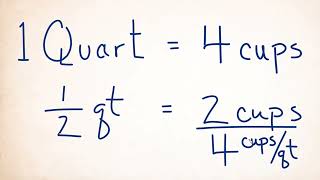 1 Quart = 4 cups
1/2 qt = 2 cups / 4 cups/qt